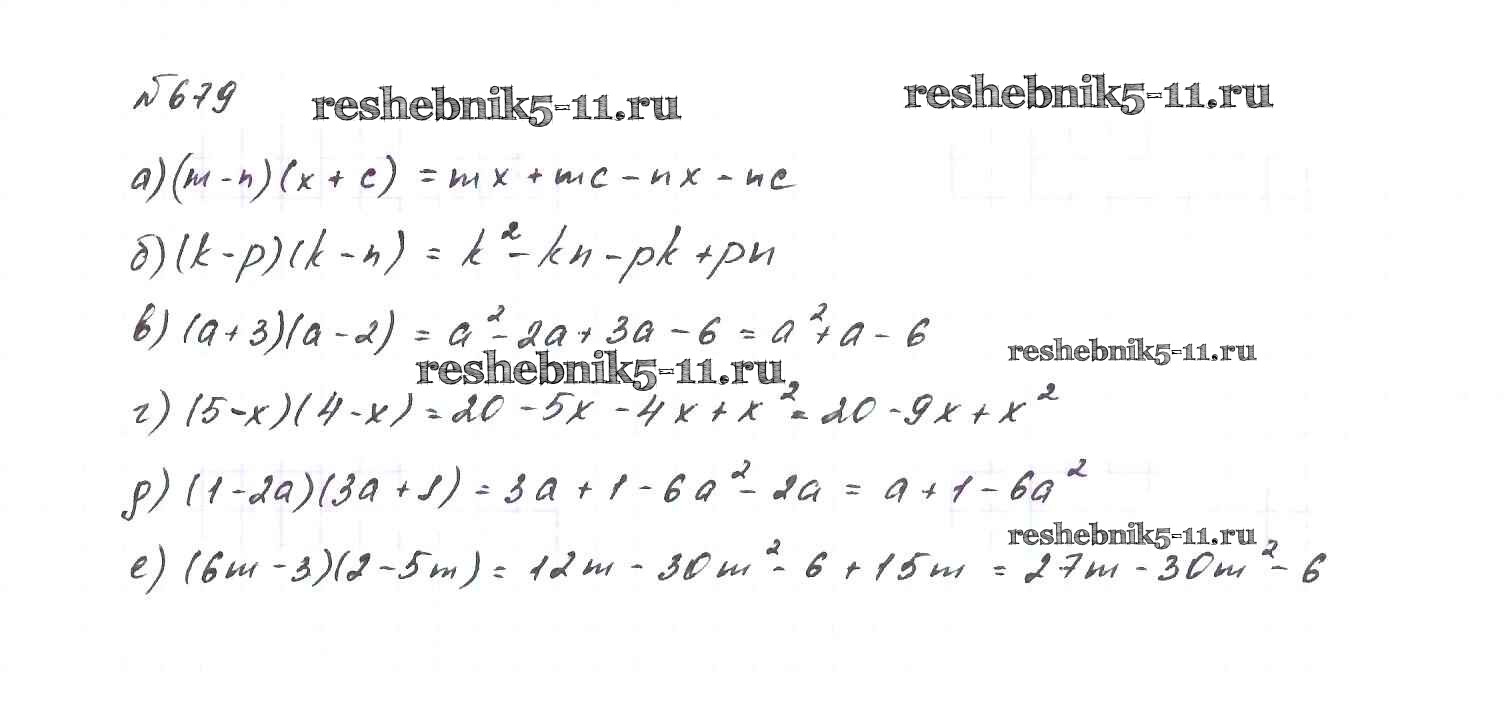 №679 reshebnik5-11.ru reshebnik5-11.ru
а) (m - n)(x + c) = mx + mc - nx - nc
б) (k - p)(k - n) = k² - kn - pk + pn
в) (a + 3)(a - 2) = a² - 2a + 3a - 6 = a² + a - 6
reshebnik5-11.ru reshebnik5-11.ru
г) (5 - x)(4 - x) = 20 - 5x - 4x + x² = 20 - 9x + x²
д) (1 - 2a)(3a + 1) = 3a + 1 - 6a² - 2a = a + 1 - 6a²
reshebnik5-11.ru
е) (6m - 3)(2 - 5m) = 12m - 30m² - 6 + 15m = 27m - 30m² - 6